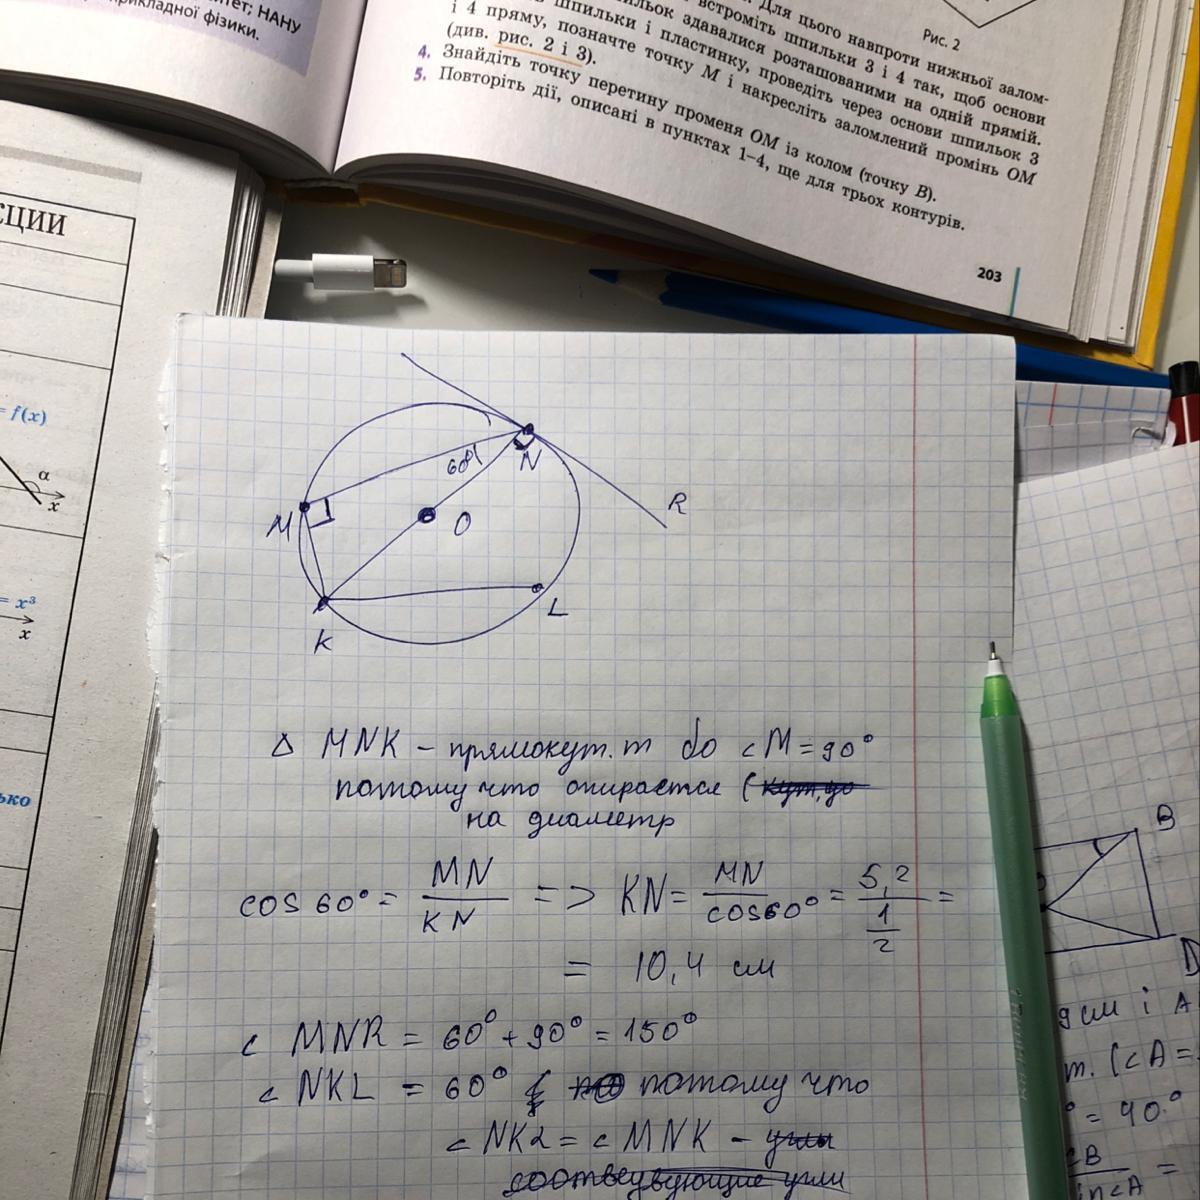 итет; НАНУ
прикладної фізики.
Для цього навпроти нижньої залом-
встроміть шпильки 3 і 4 так, щоб основи
шпильки і пластинку, проведіть через основи шпильок 3
і 4 пряму, позначте точку M і накресліть заломлений промінь OM
(див. рис. 2 і 3).
4. Знайдіть точку перетину променя OM із колом (точку B).
5. Повторіть дії, описані в пунктах 1–4, ще для трьох контурів.
Рис. 2
203
ЄЦИИ
= f(x)
α
x
= x³
x
ько
M
N
60°
O
R
K
L
Δ MNK – прямокут. т бо ∠M = 90°
потому что опирается (
на диаметр
cos 60° = MN/KN => KN = MN/cos60° = 5,2/(1/2) =
= 10,4 см
∠ MNR = 60° + 90° = 150°
∠ NKL = 60° потому что
∠ NKL = ∠ MNK – углы
соответствующие углы
B
D
см і A
т. (∠A =
° = 40°
B
sin∠A =